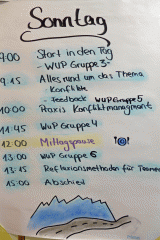 Sonntag
9:00 Start in den Tag
- WUP Gruppe 3 -
9.15 Alles rund um das Thema
Konflikte
- Feedback WUP Gruppe 5
10:00 Praxis Konfliktmanagment
11:45 WUP Gruppe 4
12:00 Mittagspause
13:00 WUP Gruppe 6
13:15 Reflexionsmethoden für Teamer
15:00 Abschied